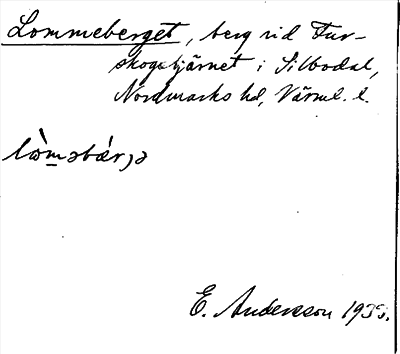 Lommeberget, berg vid Fur-
skogstjärnet i Silbodal,
Nordmarks hd, Värml. l.
E. Andersson